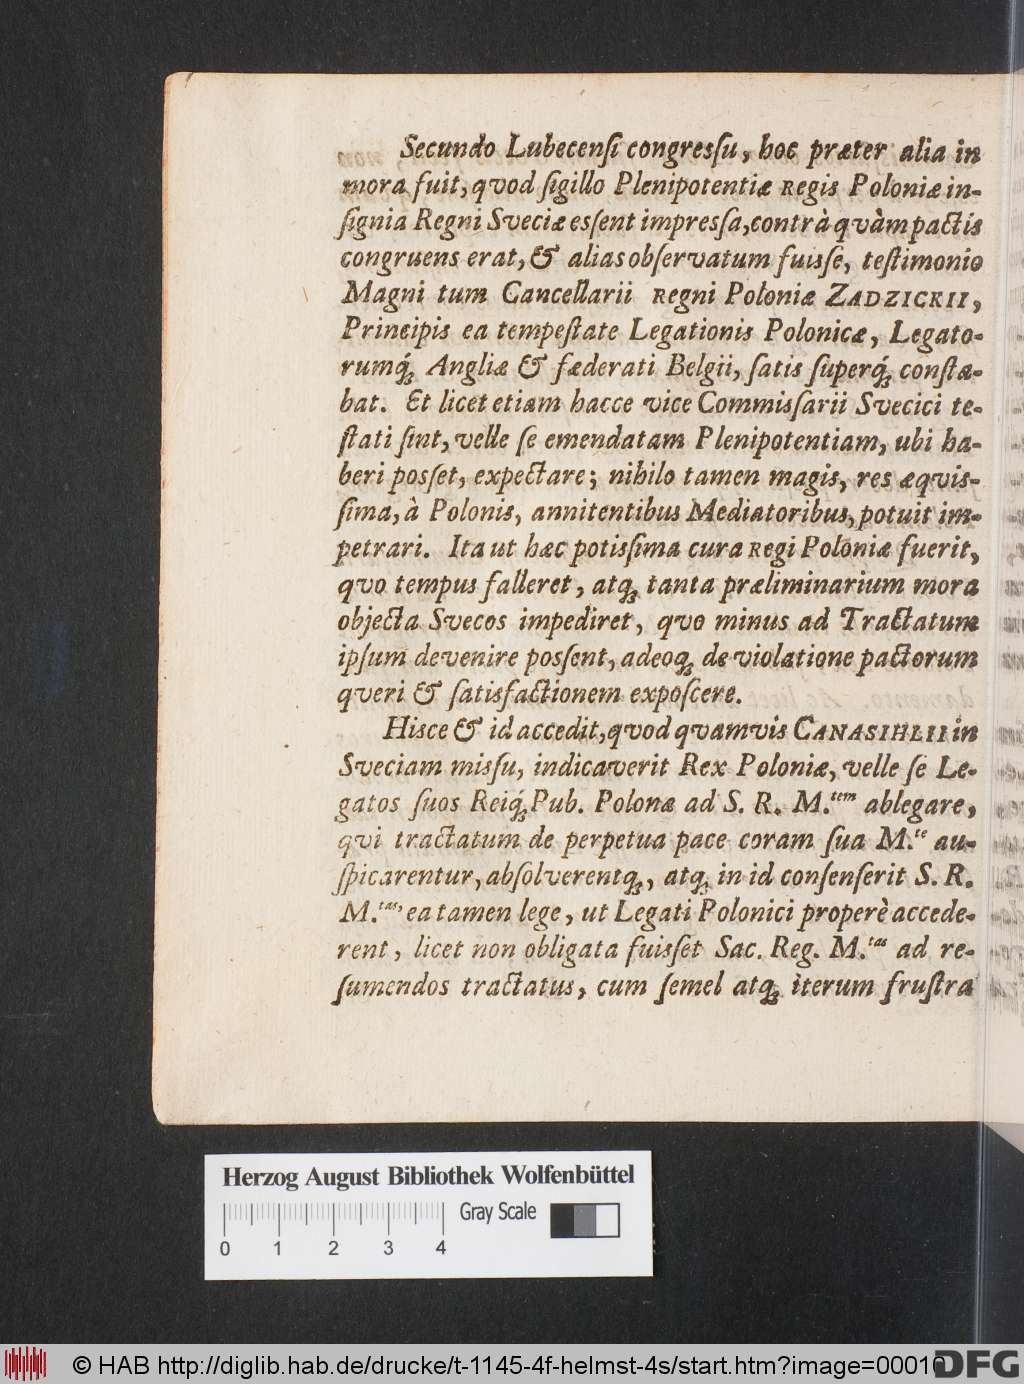 Secundo Lubecensi congressu, hoc præter alia in
mora fuit, qvod sigillo Plenipotentiæ Regis Poloniæ in-
signia Regni Sveciæ essent impressa, contrà qvàm pactis
congruens erat, & alias observatum fuisse, testimonio
Magni tum Cancellarii Regni Poloniæ ZADZICKII,
Principis ea tempestate Legationis Polonicæ, Legato-
rumq́; Angliæ & fæderati Belgii, satis superq́; consta-
bat. Et licet etiam hacce vice Commissarii Svecici te-
stati sint, velle se emendatam Plenipotentiam, ubi ha-
beri posset, expectare; nihilo tamen magis, res æqvis-
sima, à Polonis, annitentibus Mediatoribus, potuit im-
petrari. Ita ut hæc potissima cura Regi Poloniæ fuerit,
qvo tempus falleret, atq; tanta præliminarium mora
objecta Svecos impediret, qvo minus ad Tractatum
ipsum devenire possent, adeoq; de violatione pactorum
queri & satisfactionem exposcere.
Hisce & id accedit, qvod qvamvis CANASIHLII in
Sveciam missu, indicaverit Rex Poloniæ, velle se Le-
gatos suos Reiq́; Pub. Polonæ ad S. R. M.tem ablegare,
qvi tractatum de perpetua pace coram sua M.te au-
spicarentur, absolverentq;, atq; in id consenserit S. R.
M.tas, ea tamen lege, ut Legati Polonici properè accede-
rent, licet non obligata fuisset Sac. Reg. M.tas ad re-
sumendos tractatus, cum semel atq; iterum frustra
Herzog August Bibliothek Wolfenbüttel
Gray Scale
0 1 2 3 4
© HAB http://diglib.hab.de/drucke/t-1145-4f-helmst-4s/start.htm?image=00010
DFG